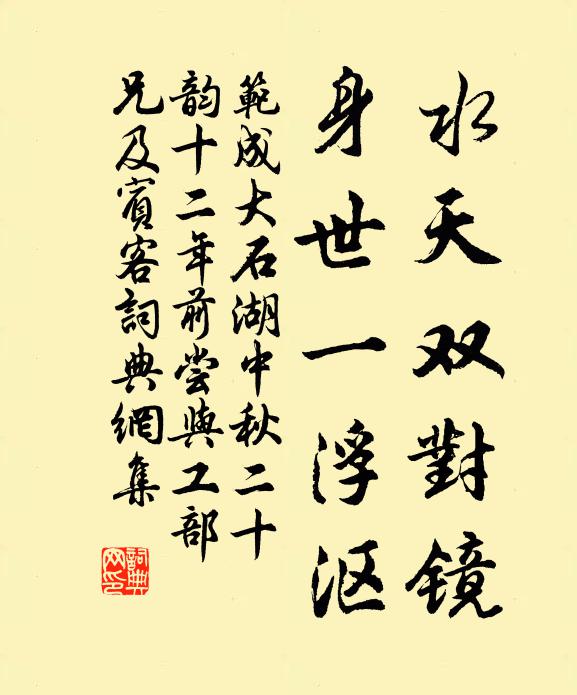 水天双對镜
身世一浮沤
範成大石湖中秋二十
韵十二年前尝與工部
兄及賓客詞典網集
詞典
网印